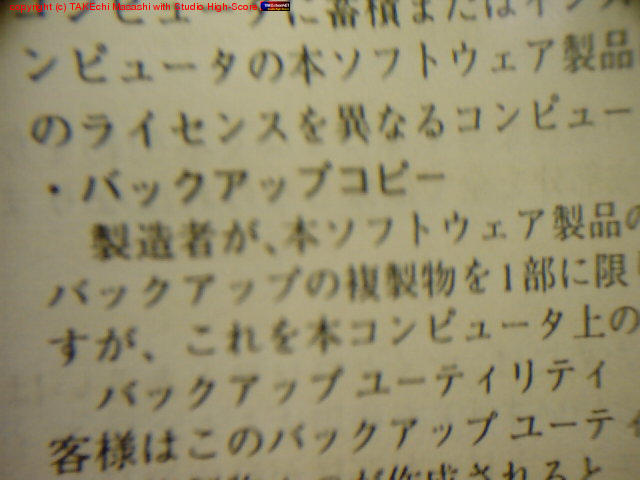 copyright (c) TAKEchi Masashi with Studio High-Score
コンピュータに蓄積またはインス
ンピュータの本ソフトウェア製品
のライセンスを異なるコンピュー
・バックアップコピー
製造者が、本ソフトウェア製品の
バックアップの複製物を1部に限
すが、これを本コンピュータ上の
バックアップ ユーティリティ
客様はこのバックアップ ユーティ
が作成されると